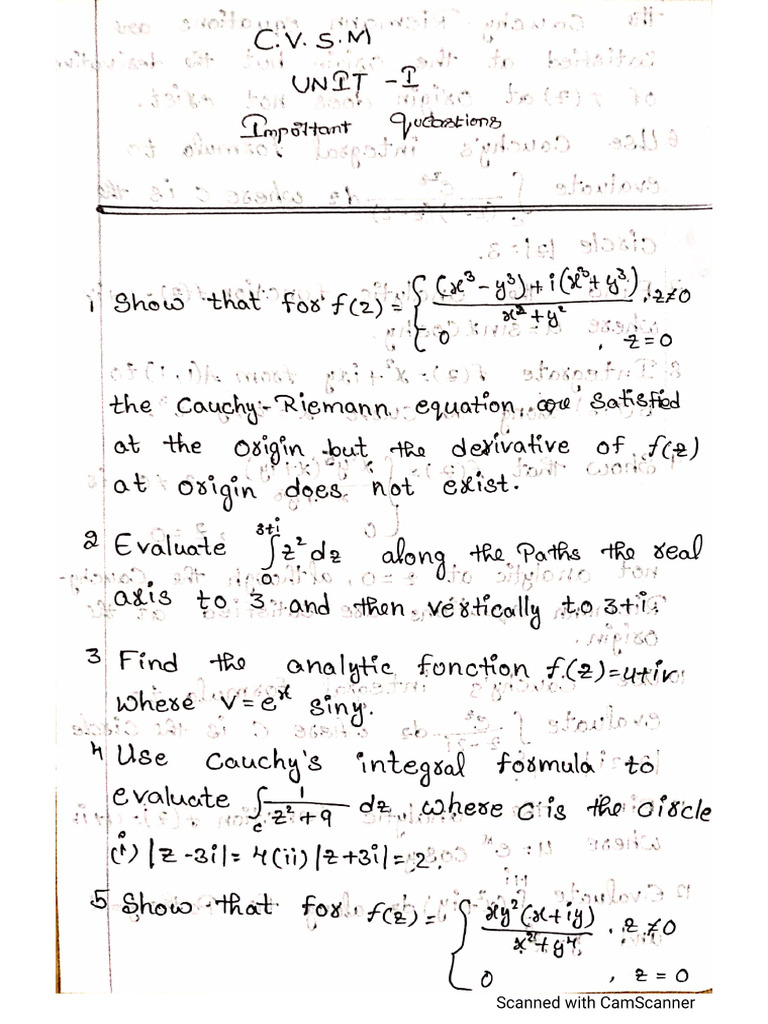 C.V.S.M
UNIT - I
Important Questions
1 Show that for f(z) = { (x³ - y³) + i(x³ + y³) / x² + y² , z≠0
0 , z = 0
the Cauchy-Riemann equation, are satisfied
at the origin but the derivative of f(z)
at origin does not exist.
2 Evaluate ∫₀³⁺ⁱ z² dz along the Paths the real
axis to 3 and then vertically to 3+i.
3 Find the analytic fonction f(z)=u+iv
where V = eˣ siny.
4 Use Cauchy's integral formula to
evaluate ∫c 1/z²+9 dz where C is the circle
(i) |z - 3i| = 4 (ii) |z + 3i| = 2.
5 Show that for f(z) = { xy²(x+iy) / x²+y⁴ , z≠0
0 , z = 0
Scanned with CamScanner